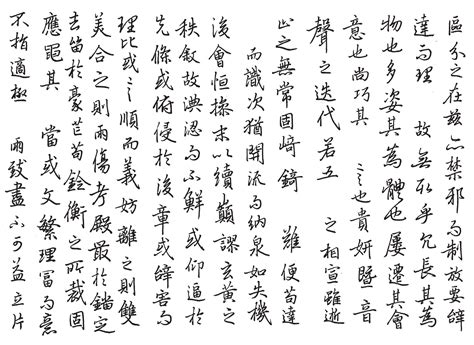 區分之在茲亦禁邪而制放要辭
達而理 故無取乎冗長其為
物也多姿其為體也屢遷其會
意也尚巧其 言也貴妍暨音
聲之迭代 若五 之相宣雖逝
止之無常固崎錡 難便苟達
而識次猶開流而納泉如失機
後會恒操末以續巔謬玄黃之
秩敘故淟涊而不鮮或仰逼於
先條或俯侵於後章或辭害而
理比或言順而義妨離之則雙
美合之則兩傷考殿最於錙定
去留於豪芒苟銓衡之所裁固
應繩其 當或文繁理富而意
不指適極 兩致盡不可益立片